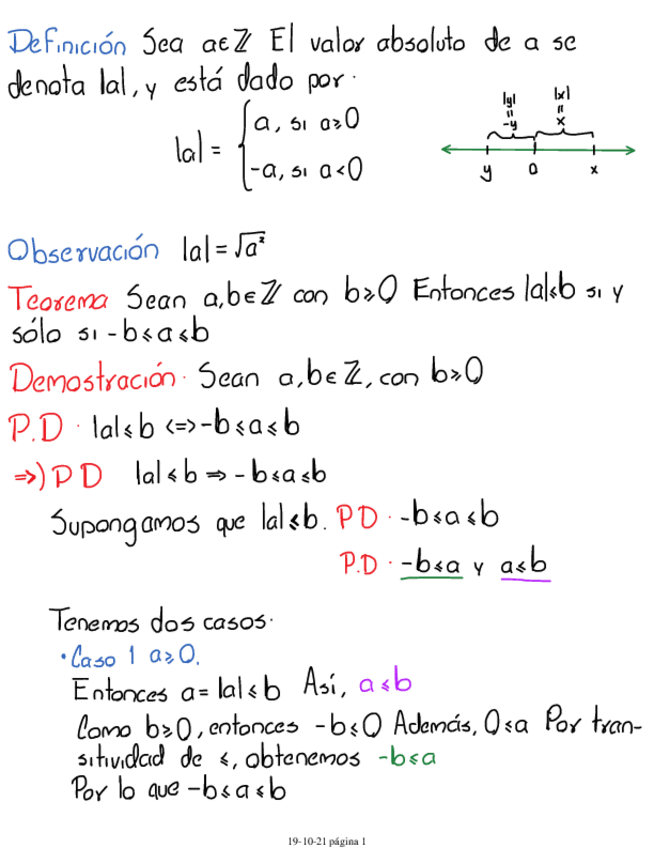 Definición Sea a∈ℤ El valor absoluto de a se
denota |a|, y está dado por:
|a| = { a, si a≥0
-a, si a<0
|y| = -y
|x| = x
y 0 x
Observación |a| = √a²
Teorema Sean a,b∈ℤ con b≥0 Entonces |a|≤b si y
sólo si -b≤a≤b
Demostración. Sean a,b∈ℤ, con b≥0
P.D. |a|≤b <=> -b≤a≤b
=>) PD |a|≤b => -b≤a≤b
Supongamos que |a|≤b. PD. -b≤a≤b
P.D. -b≤a y a≤b
Tenemos dos casos:
• Caso 1 a≥0.
Entonces a = |a|≤b Así, a≤b
Como b≥0, entonces -b≤0 Además, 0≤a Por tran-
sitividad de ≤, obtenemos -b≤a
Por lo que -b≤a≤b
19-10-21 página 1